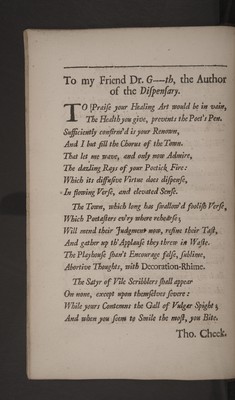 To my Friend Dr. G—th, the Author
of the Dispensary.
TO Praise your Healing Art would be in vain,
The Health you give, prevents the Poet's Pen.
Sufficiently confirm'd is your Renown,
And I but fill the Chorus of the Town.
That let me wave, and only now Admire,
The dazling Rays of your Poetick Fire:
Which its diffusive Virtue does dispense,
In flowing Verse, and elevated Sense.
The Town, which long has swallow'd foolish Verse,
Which Poetasters ev'ry where rehearse,
Will mend their Judgment now, refine their Tast,
And gather up th' Applause they threw in Waste.
The Playhouse shan't Encourage false, sublime,
Abortive Thoughts, with Decoration-Rhime.
The Satyr of Vile Scribblers shall appear
On none, except upon themselves severe:
While yours Contemns the Gall of Vulgar Spight;
And when you seem to Smile the most, you Bite.
Tho. Cheek.